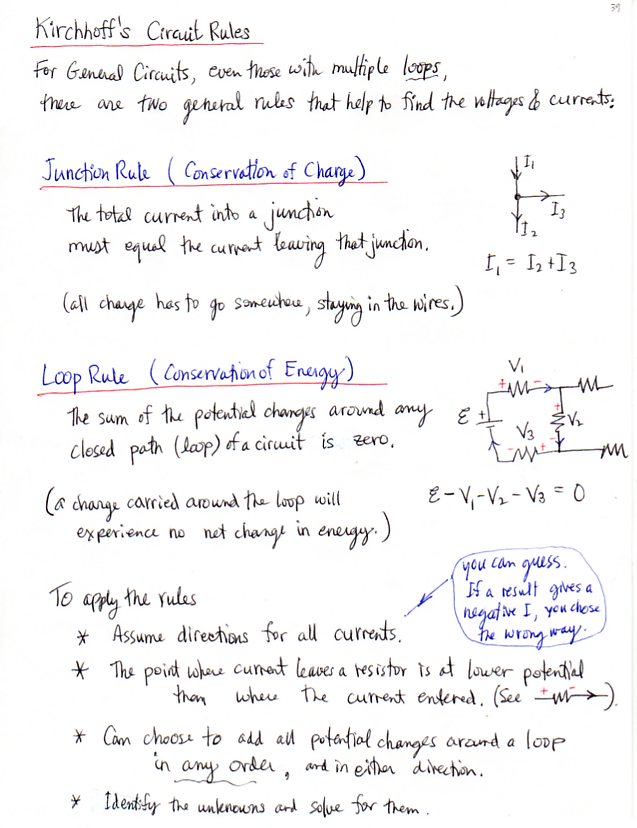 39
Kirchhoff's Circuit Rules
For General Circuits, even those with multiple loops,
there are two general rules that help to find the voltages & currents:
Junction Rule ( Conservation of Charge)
The total current into a junction
must equal the current leaving that junction.
(all charge has to go somewhere, staying in the wires.)
I₁
I₃
I₂
I₁ = I₂ + I₃
Loop Rule ( Conservation of Energy)
The sum of the potential changes around any
closed path (loop) of a circuit is zero.
(a charge carried around the loop will
experience no net change in energy.)
V₁
+ -
ℰ +
-
+
V₂
-
V₃
- +
ℰ - V₁ - V₂ - V₃ = 0
To apply the rules
you can guess.
If a result gives a
negative I, you chose
the wrong way.
* Assume directions for all currents.
* The point where current leaves a resistor is at lower potential
than where the current entered. (See + - ).
* Can choose to add all potential changes around a loop
in any order, and in either direction.
* Identify the unknowns and solve for them.